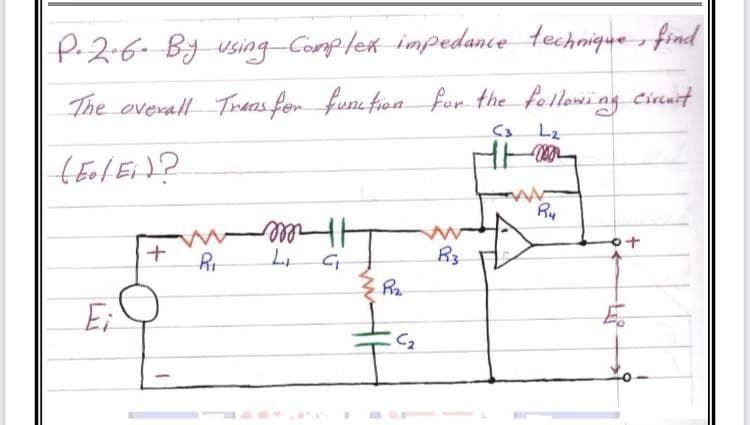 P.2.6. By using Complex impedance technique, find
The overall Transfer function for the following circuit
(Eo/Ei)?
C3 L2
R4
+ R1 L1 C1 R3 +
R2
Ei Eo
C2
- -